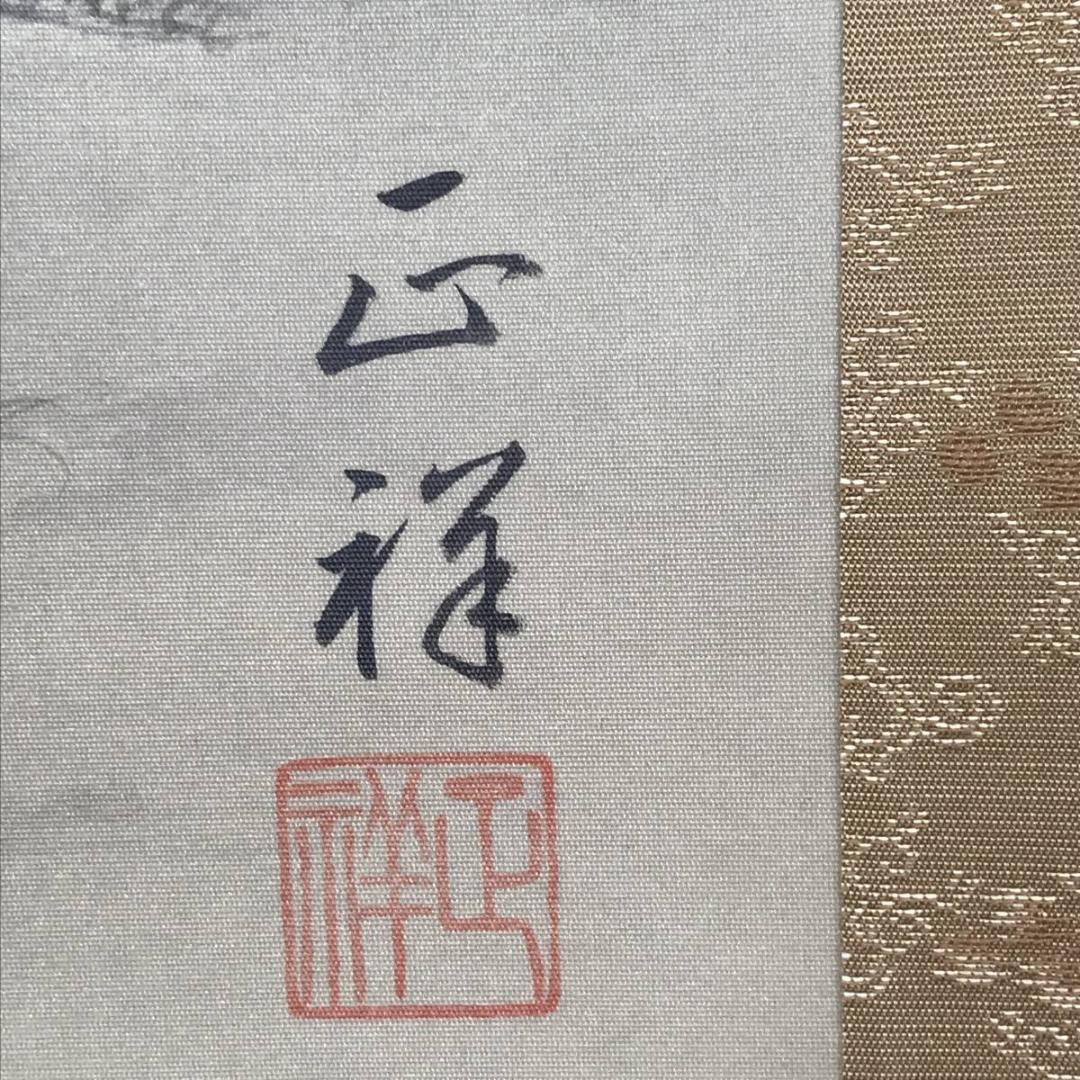 正祥
正祥